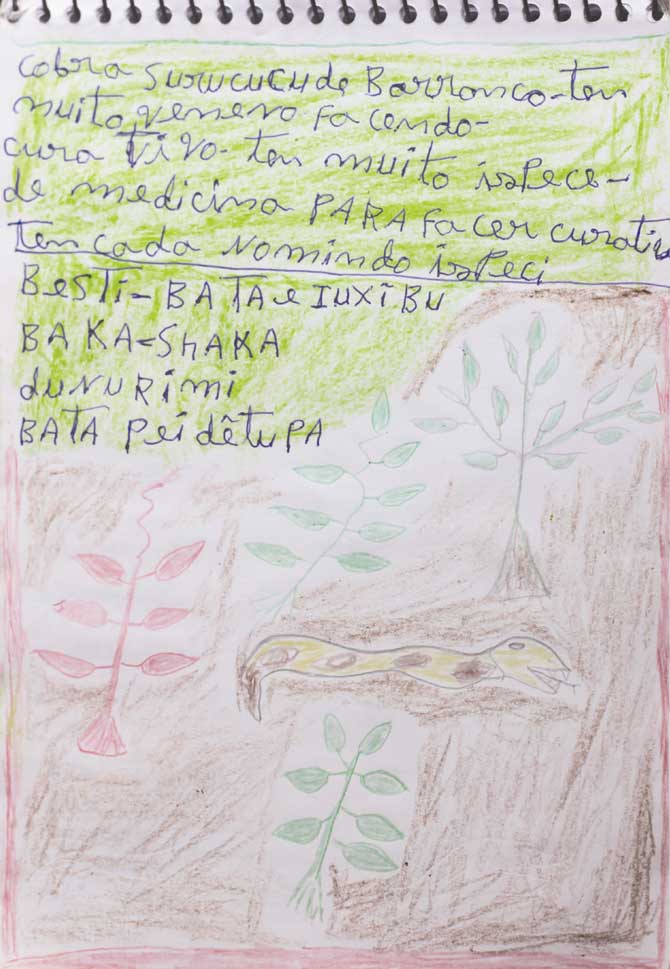 cobra surucucu de Barronco-ten
muito veneno facendo-
cura tivo- ten muito ispece-
de medicina PARA facer curativo
ten cada nomindo ispeci
BESTi-BATA e IUXĩBU
BAKA-ShAKA
duNURimi
BATA Pei dêtuPA